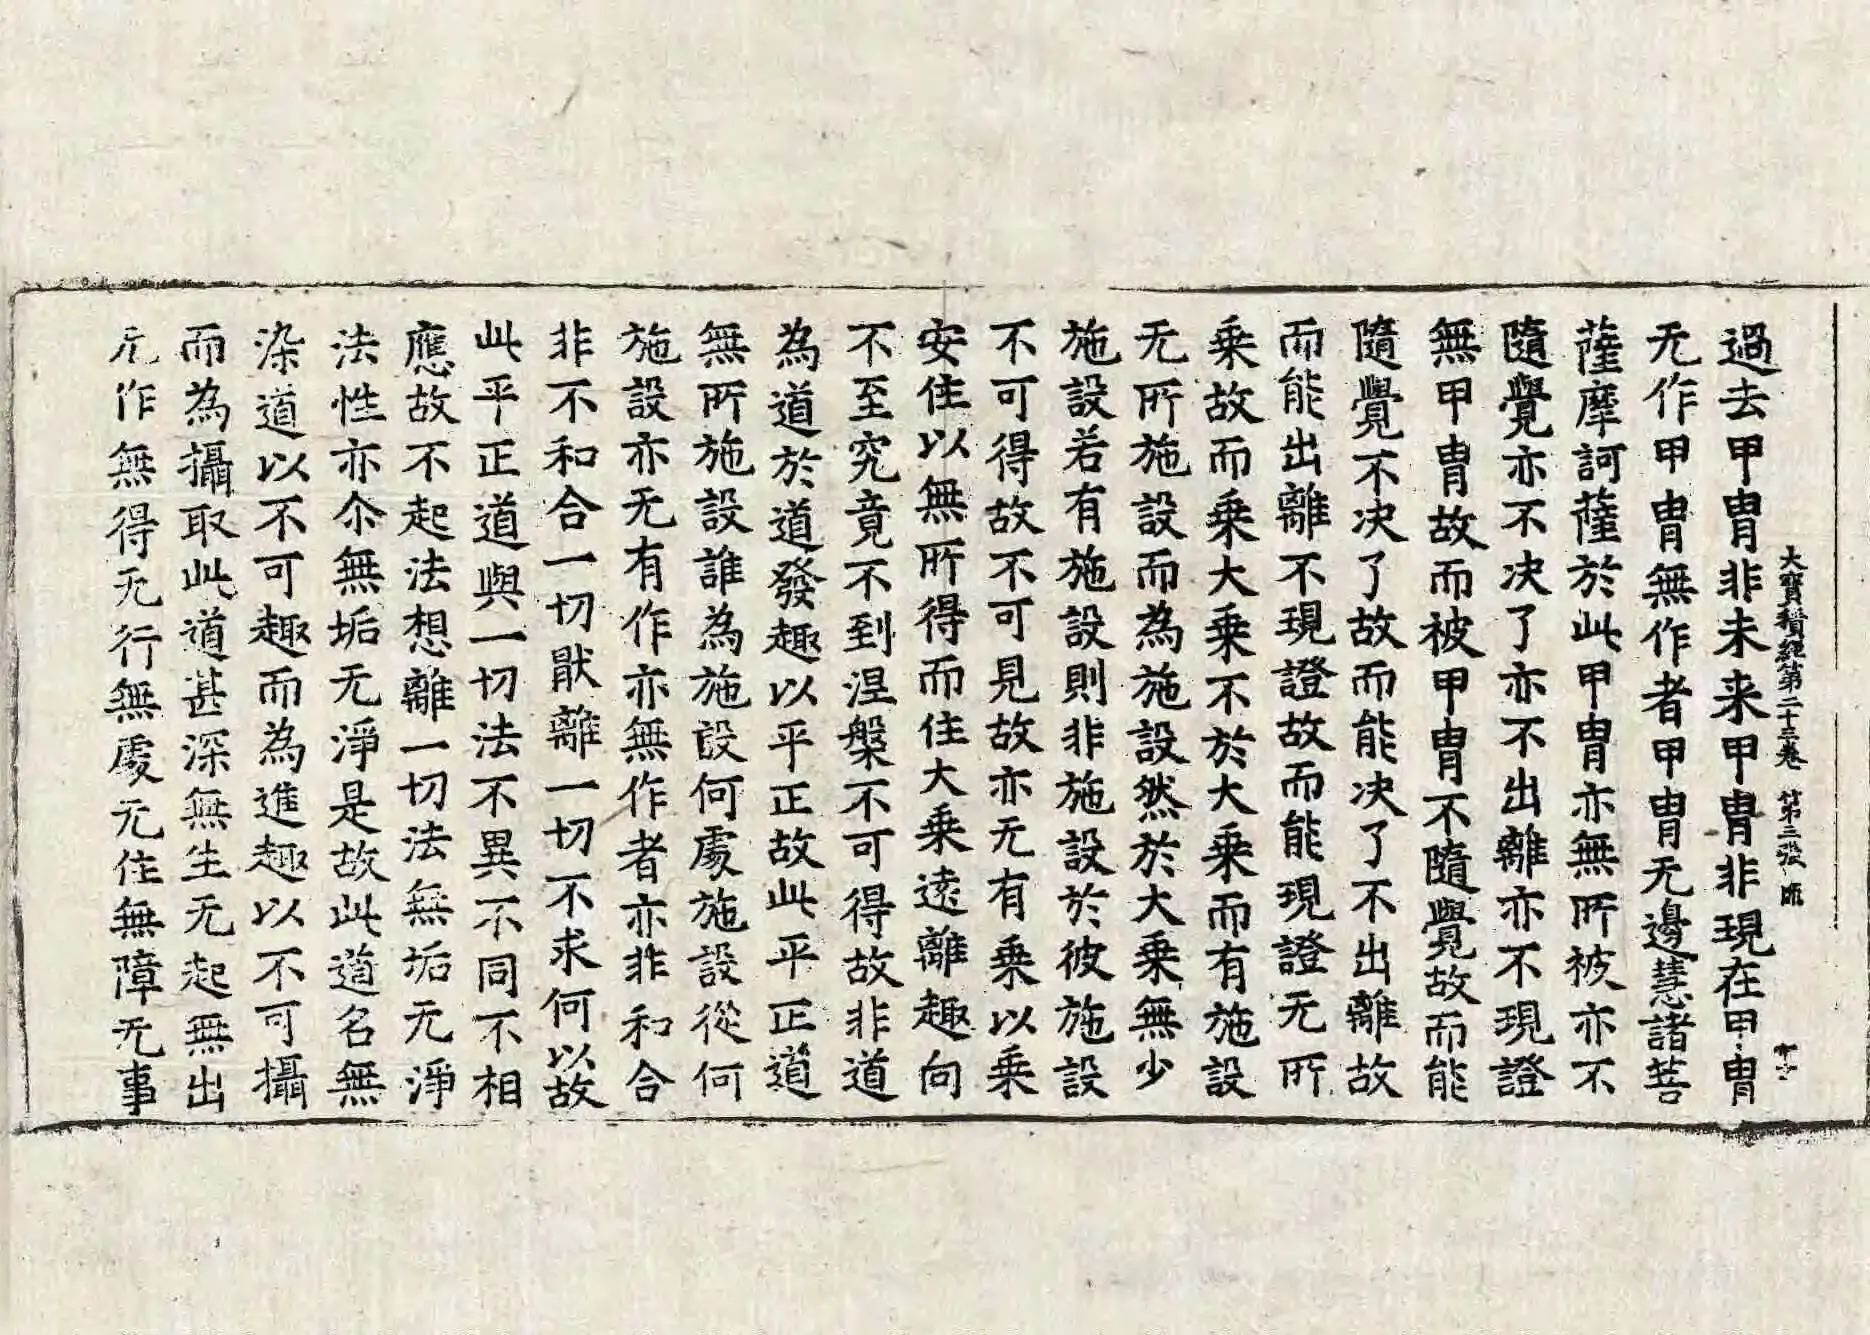 過去甲冑非未来甲冑非現在甲冑
大寶積經第二十三卷 第三張
无作甲冑無作者甲冑无邊慧諸菩
薩摩訶薩於此甲冑亦無所被亦不
隨覺亦不决了亦不出離亦不現證
無甲冑故而被甲冑不隨覺故而能
隨覺不决了故而能决了不出離故
而能出離不現證故而能現證无所
乗故而乗大乗不於大乗而有施設
无所施設而為施設然於大乗無少
施設若有施設則非施設於彼施設
不可得故不可見故亦无有乗以乗
安住以無所得而住大乗遠離趣向
不至究竟不到涅槃不可得故非道
為道於道發趣以平正故此平正道
無所施設誰為施設何處施設從何
施設亦无有作亦無作者亦非和合
非不和合一切猒離一切不求何以故
此平正道與一切法不異不同不相
應故不起法想離一切法無垢无淨
法性亦尒無垢无淨是故此道名無
染道以不可趣而為進趣以不可攝
而為攝取此道甚深無生无起無出
无作無得无行無處无住無障无事